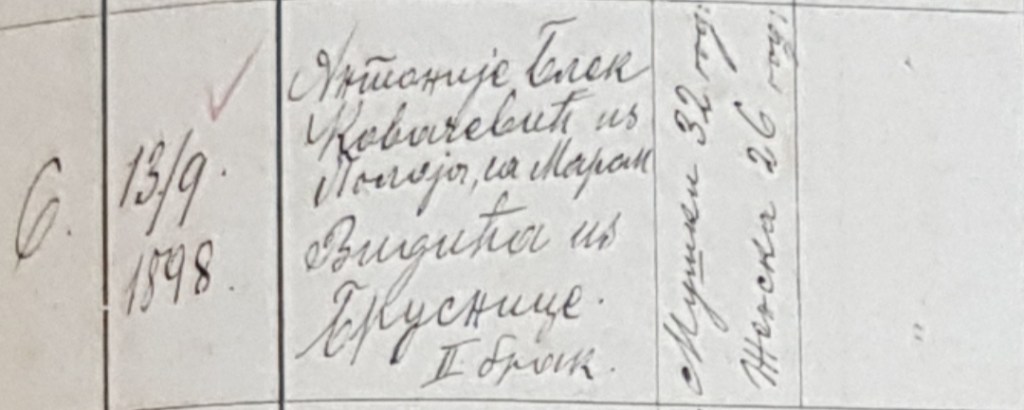 6.
13/9.
1898.
Антоније Блек
Ковачевић из
са Маром
Видића из
II брак.
Мушки 32 год.
Женска 26 год.
"